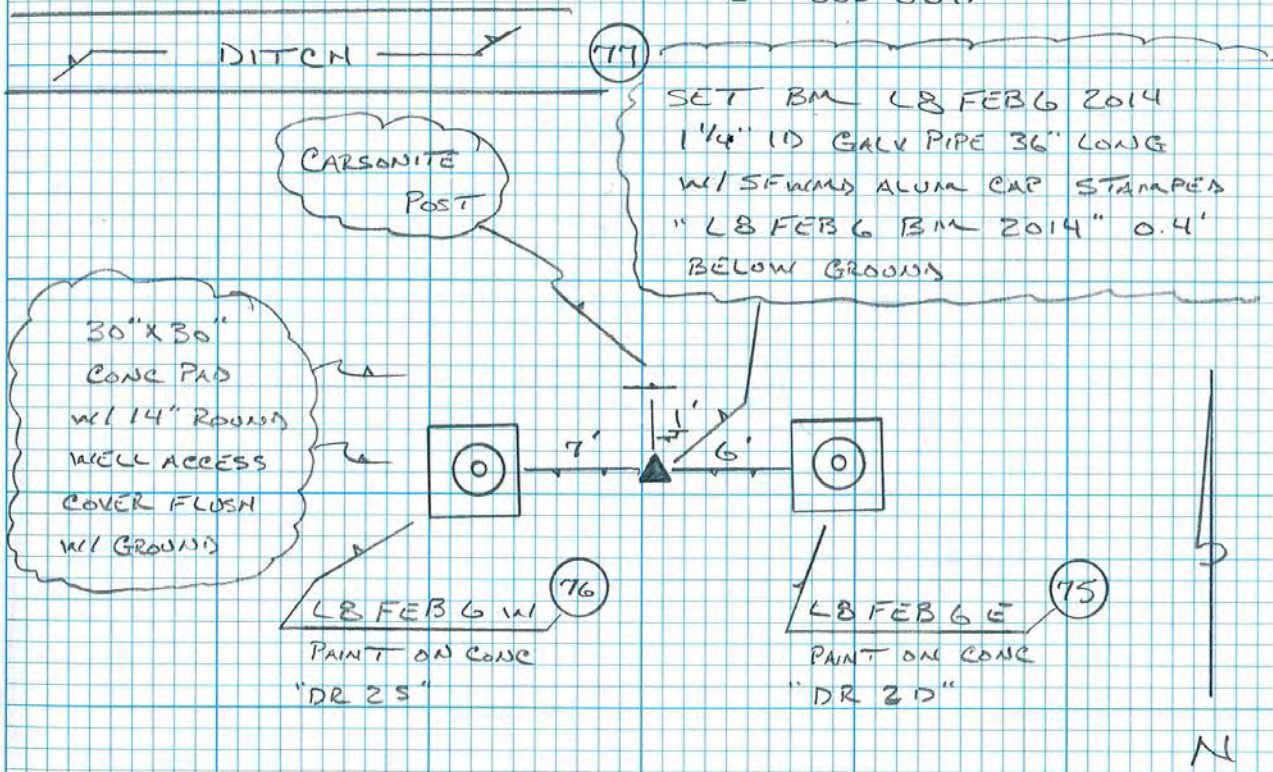 DITCH
77
SET BM L8 FEB 6 2014
1 1/4" ID GALV PIPE 36" LONG
W/ SFWMD ALUM CAP STAMPED
"L8 FEB 6 BM 2014" 0.4'
BELOW GROUND
CARSONITE
POST
30"X30"
CONC PAD
W/ 14" ROUND
WELL ACCESS
COVER FLUSH
W/ GROUND
1'
7'
6'
76
L8 FEB 6 W
PAINT ON CONC
"DR 2S"
75
L8 FEB 6 E
PAINT ON CONC
"DR 2D"
N